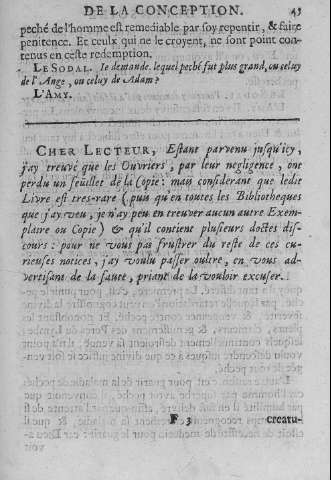 DE LA CONCEPTION. 45
peché de l'homme est remediable par soy repentir, & faire
penitence. Et ceulx qui ne le croyent, ne sont point con-
tenus en ceste redemption.
LE SODAL. Ie demande, lequel peché fut plus grand, ou celuy
de l'Ange, ou celuy de Adam?
L'AMY.
CHER LECTEUR, Estant parvenu jusqu'icy,
j'ay treuvé que les Ouvriers, par leur negligence, ont
perdu un feuillet de la Copie: mais considerant que ledit
Livre est tres-rare (puis qu'en toutes les Bibliotheques
que j'ay veu, je n'ay peu en treuver aucun autre Exem-
plaire ou Copie) & qu'il contient plusieurs doctes dis-
cours: pour ne vous pas frustrer du reste de ces cu-
rieuses notices, j'ay voulu passer oultre, en vous ad-
vertisant de la faute, priant de la vouloir excuser.
F 3 creatu-